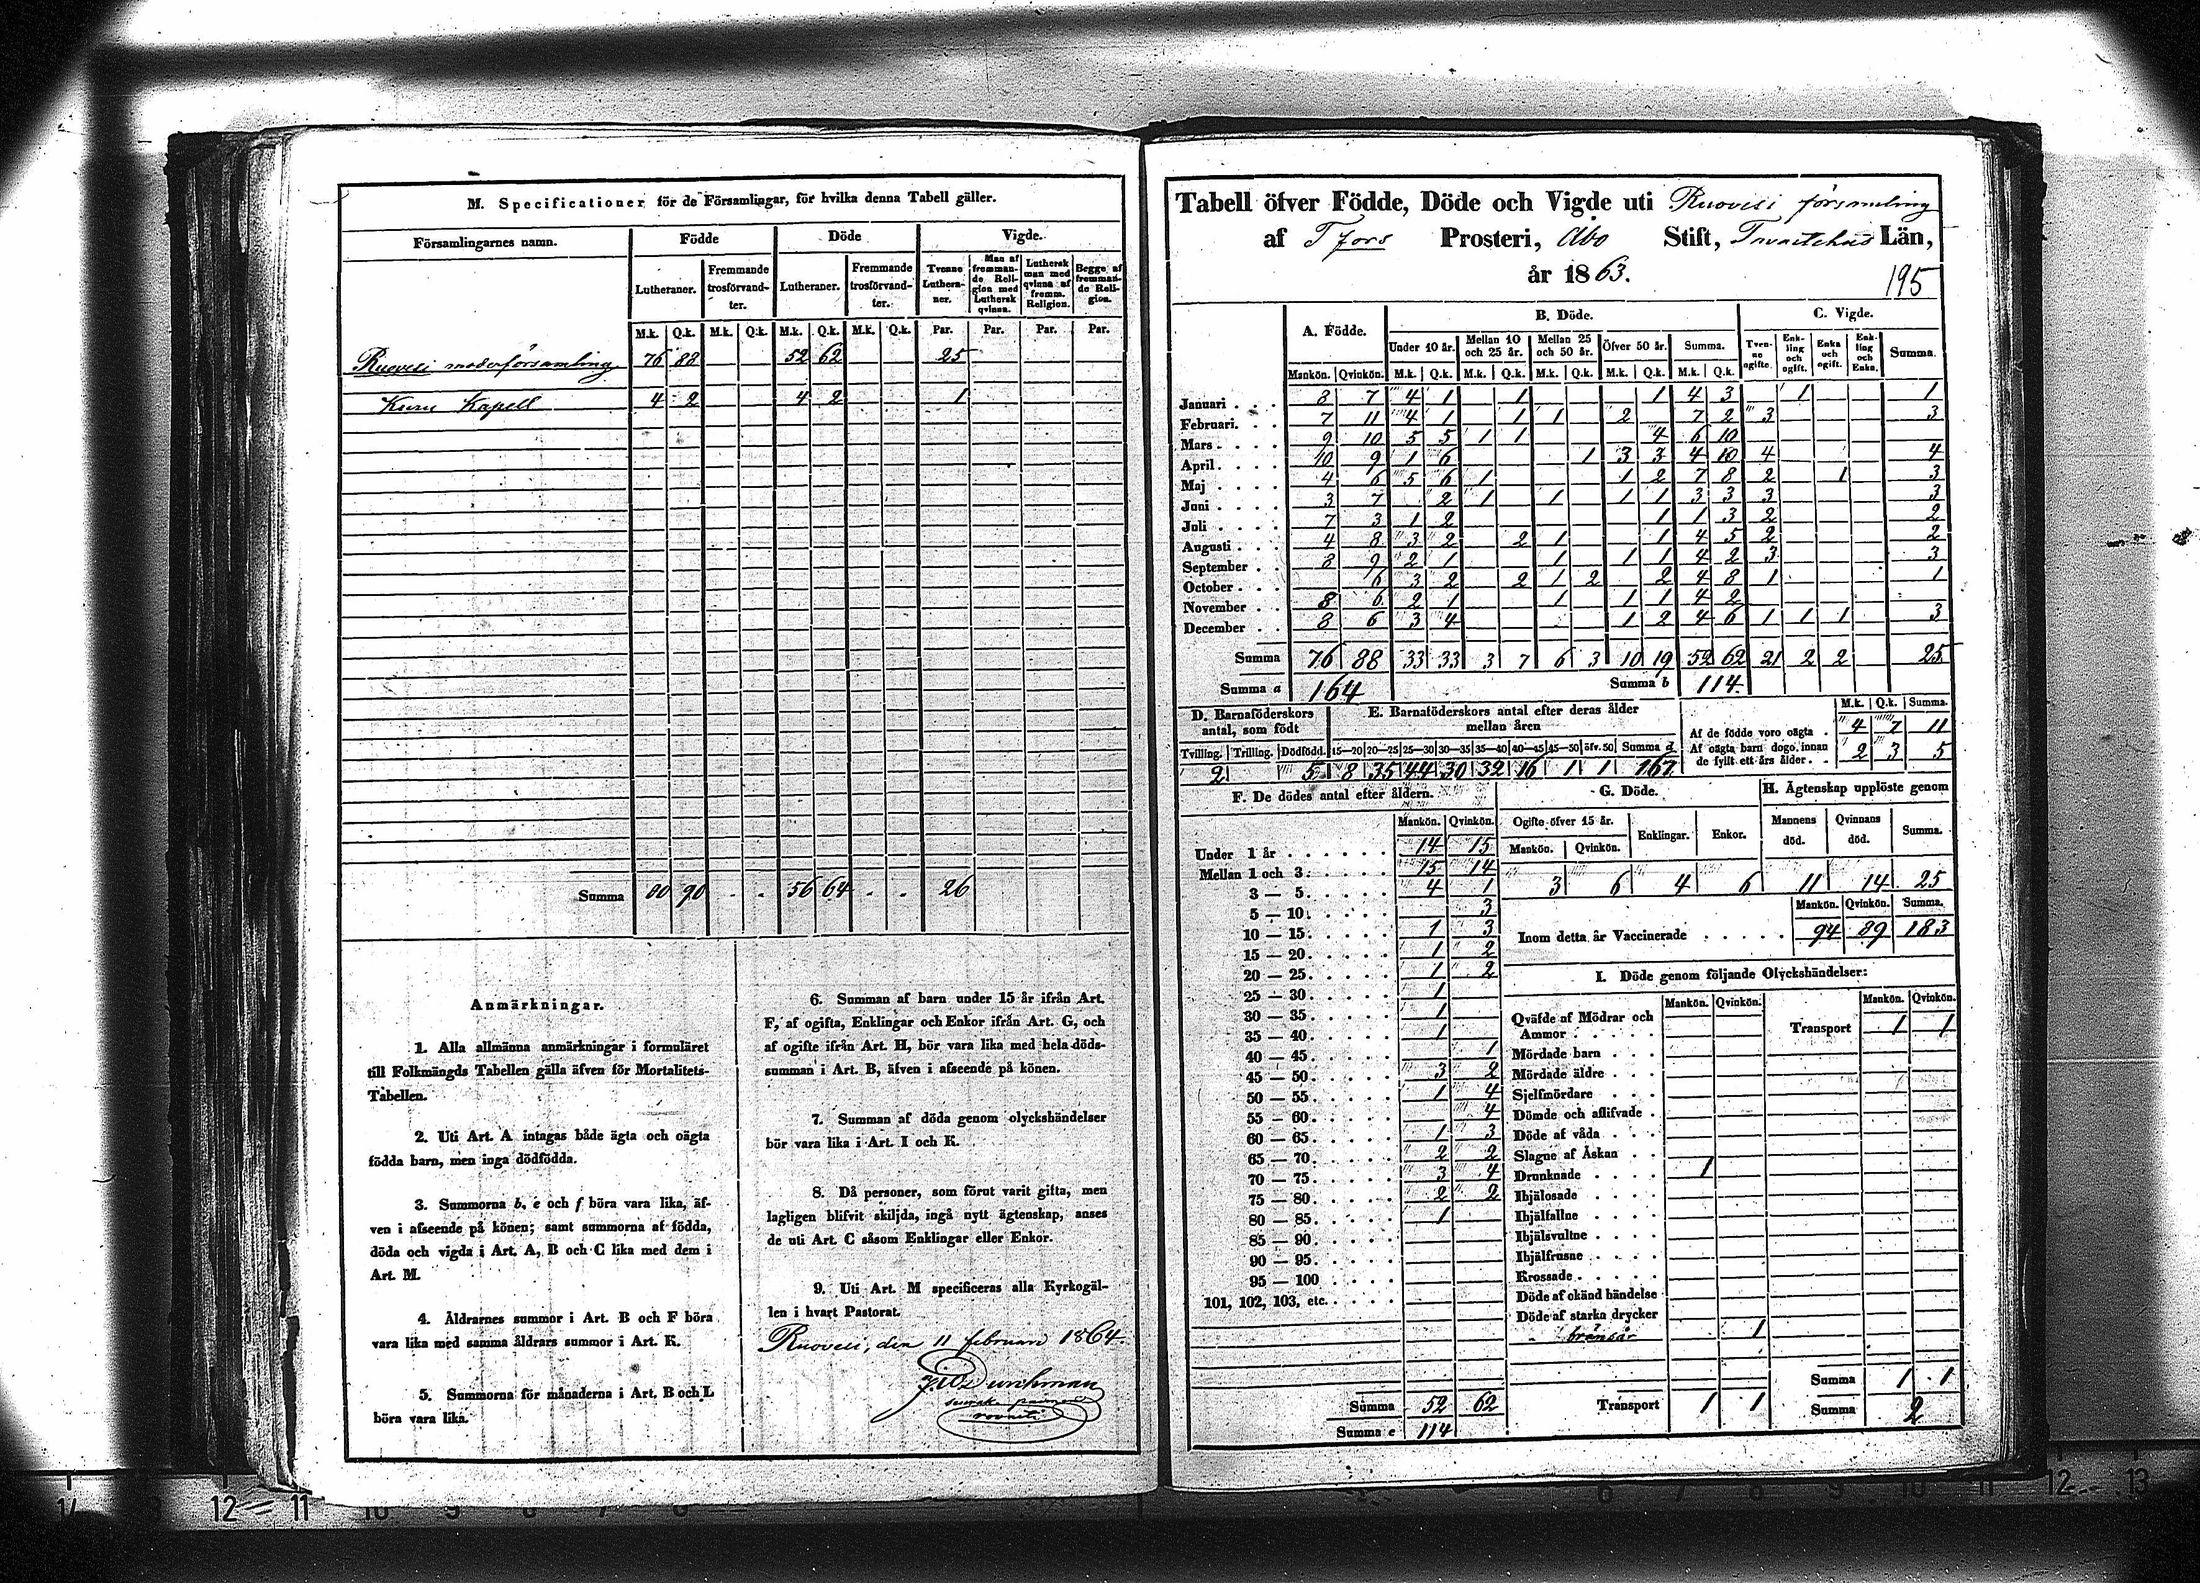 M. Specificationer för de Församlingar, för hvilka denna Tabell gäller.
Församlingarnes namn. Födde Döde Vigde.
Lutheraner. Fremmande trosförvandter. Lutheraner. Fremmande trosförvandter. Tvenne Lutheraner. Man af fremmande Religion med Luthersk qvinna. Luthersk man med qvinna af fremm. Religion. Begge af fremmande Religion.
M.k. Q.k. M.k. Q.k. M.k. Q.k. M.k. Q.k. Par. Par. Par. Par.
Ruovesi moderförsamling 76 88 52 62 25
Kuru Kapell 4 2 4 2 1
Summa 80 90 - - 56 64 - - 26
Anmärkningar.
1. Alla allmänna anmärkningar i formuläret
till Folkmängds Tabellen gälla äfven för Mortalitets-
Tabellen.
2. Uti Art. A intagas både ägta och oägta
födda barn, men inga dödfödda.
3. Summorna b, e och f böra vara lika, äf-
ven i afseende på könen; samt summorna af födda,
döda och vigda i Art. A, B och C lika med dem i
Art. M.
4. Åldrarnes summor i Art. B och F böra
vara lika med samma åldrars summor i Art. K.
5. Summorna för månaderna i Art. B och L
böra vara lika.
6. Summan af barn under 15 år ifrån Art.
F, af ogifta, Enklingar och Enkor ifrån Art. G, och
af ogifte ifrån Art. H, bör vara lika med hela döds-
summan i Art. B, äfven i afseende på könen.
7. Summan af döda genom olyckshändelser
bör vara lika i Art. I och K.
8. Då personer, som förut varit gifta, men
lagligen blifvit skiljda, ingå nytt ägtenskap, anses
de uti Art. C såsom Enklingar eller Enkor.
9. Uti Art. M specificeras alla Kyrkogäl-
len i hvart Pastorat.
Ruovesi, den 11 februari 1864.
Tabell öfver Födde, Döde och Vigde uti Ruovesi församling
af T fors Prosteri, Åbo Stift, Tavastehus Län,
år 1863.
195
A. Födde. B. Döde. C. Vigde.
Under 10 år. Mellan 10 och 25 år. Mellan 25 och 50 år. Öfver 50 år. Summa. Tvenne ogifte. Enkling och ogift. Enka och ogift. Enkling och Enka. Summa.
Mankön. Qvinkön. M.k. Q.k. M.k. Q.k. M.k. Q.k. M.k. Q.k. M.k. Q.k.
Januari 8 7 4 1 1 1 4 3 1 1
Februari 7 11 4 1 1 1 2 7 2 3 3
Mars 9 10 5 5 1 1 4 6 10
April 10 9 1 6 1 3 3 4 10 4 4
Maj 4 6 5 6 1 1 2 7 8 2 1 3
Juni 3 7 2 1 1 1 1 3 3 3 3
Juli 7 3 1 2 1 1 3 2 2
Augusti 4 8 3 2 2 1 1 4 5 2 2
September 8 9 2 1 1 1 1 4 2 3 3
October 6 3 2 2 1 2 2 4 8 1 1
November 8 6 2 1 1 1 1 4 2
December 8 6 3 4 1 2 4 6 1 1 1 3
Summa 76 88 33 33 3 7 6 3 10 19 52 62 21 2 2 25
Summa a 164 Summa b 114
D. Barnaföderskors antal, som födt
Tvilling. Trilling. Dödfödd.
2 5
E. Barnaföderskors antal efter deras ålder mellan åren
15—20 20—25 25—30 30—35 35—40 40—45 45—50 öfv. 50 Summa d
8 35 44 30 32 16 1 1 167
M.k. Q.k. Summa.
Af de födde voro oägta 4 7 11
Af oägta barn dogo innan de fyllt ett års ålder 2 3 5
F. De dödes antal efter åldern.
Mankön. Qvinkön.
Under 1 år 14 15
Mellan 1 och 3 15 14
3 — 5 4 1
5 — 10 3
10 — 15 1 3
15 — 20 1 2
20 — 25 1 2
25 — 30 1
30 — 35 1
35 — 40 1
40 — 45 1
45 — 50 3 2
50 — 55 1 4
55 — 60 4
60 — 65 1 3
65 — 70 2 2
70 — 75 3 4
75 — 80 2 2
80 — 85 1
85 — 90
90 — 95
95 — 100
101, 102, 103, etc.
Summa 52 62
Summa e 114
G. Döde.
Ogifte öfver 15 år. Enklingar. Enkor.
Mankön. Qvinkön.
3 6 4 6
H. Ägtenskap upplöste genom
Mannens död. Qvinnans död. Summa.
11 14 25
Mankön. Qvinkön. Summa.
Inom detta år Vaccinerade 94 89 183
I. Döde genom följande Olyckshändelser:
Mankön. Qvinkön. Mankön. Qvinkön.
Qväfde af Mödrar och Ammor
Mördade barn
Mördade äldre
Sjelfmördare
Dömde och aflifvade
Döde af våda
Slagne af Åskan
Drunknade 1
Ihjälosade
Ihjälfallne
Ihjälsvultne
Ihjälfrusne
Krossade
Döde af okänd händelse
Döde af starka drycker
brånsår 1
Transport 1 1
Transport 1 1
Summa 1 1
Summa 2
14 12 11 10 9 8 7 6
6 7 8 9 10 11 12 13